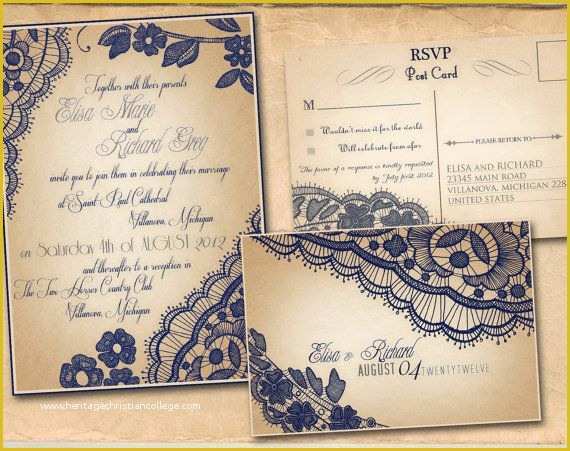 Together with their parents
Elisa Marie
and
Richard Greg
invite you to join them in celebrating their marriage
at Saint Paul Cathedral
Villanova, Michigan
on Saturday 4th of AUGUST 2012
and thereafter to a reception in
The Two Horses Country Club
Villanova, Michigan
RSVP
Post Card
M
Wouldn't miss it for the world
Will celebrate from afar
The favor of a response is kindly requested
by July first, 2012
PLEASE RETURN TO
ELISA AND RICHARD
23345 MAIN ROAD
VILLANOVA, MICHIGAN 228
UNITED STATES
Elisa & Richard
AUGUST 04 TWENTYTWELVE
www.heritagechristiancollege.com